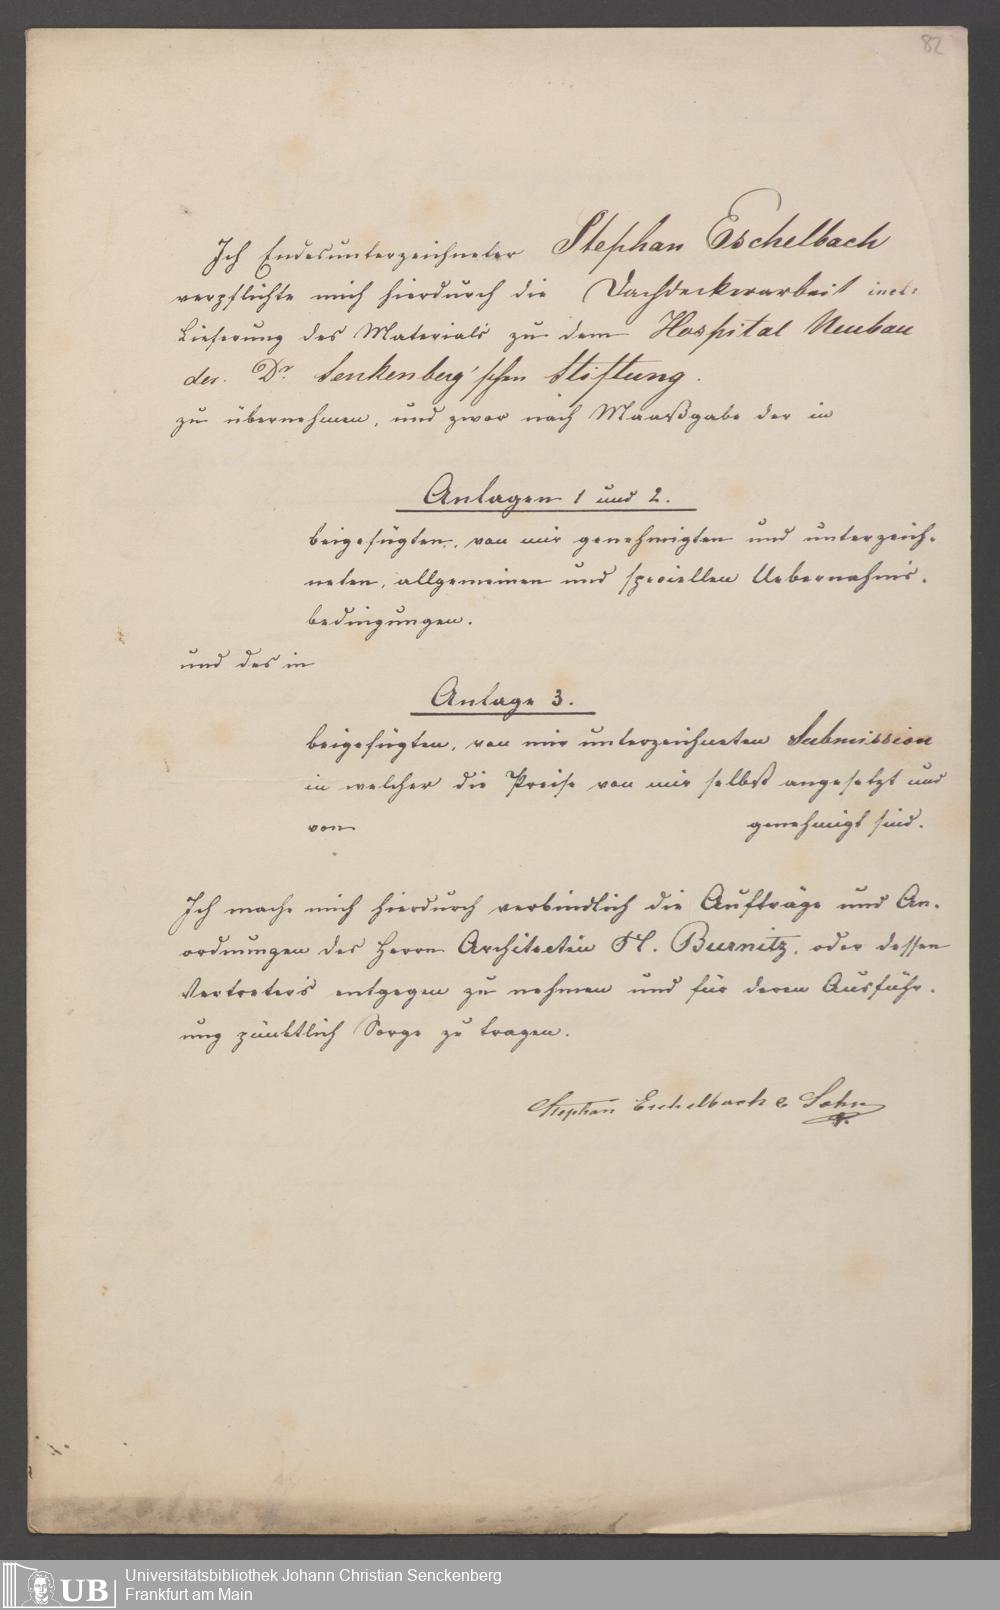 82
Ich Endesunterzeichneter Stephan Eschelbach
verpflichte mich hierdurch die Dachdeckerarbeit incl:
Lieferung des Materials zu dem Hospital Neubau
der. Dr. Senkenberg'schen Stiftung.
zu übernehmen, und zwar nach Maaßgabe der in
Anlagen 1 und 2.
beigefügten, von mir genehmigten und unterzeich-
neten, allgemeinen und speciellen Uebernahms-
bedingungen.
und des in
Anlage 3.
beigefügten, von mir unterzeichneten Submission
in welcher die Preise von mir selbst angesetzt und
von genehmigt sind.
Ich mache mich hierdurch verbindlich die Aufträge und An-
ordnungen des Herrn Architecten H. Burnitz, oder dessen
Vertreters entgegen zu nehmen und für deren Ausführ-
ung pünktlich Sorge zu tragen.
Stephan Eschelbach & Sohn
UB Universitätsbibliothek Johann Christian Senckenberg
Frankfurt am Main